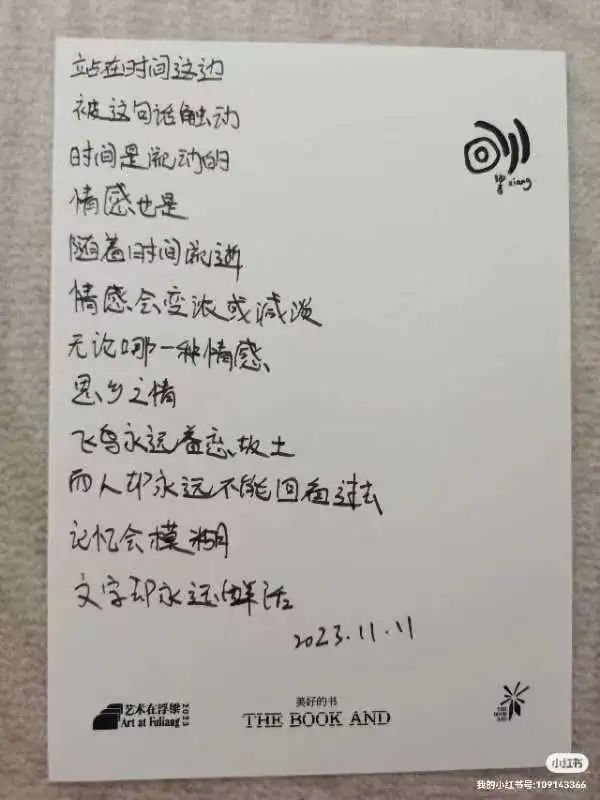 站在时间这边
被这句话触动
时间是流动的
情感也是
随着时间流逝
情感会变浓或减淡
无论哪一种情感
思乡之情
飞鸟永远着恋故土
而人却永远不能回看过去
记忆会模糊
文字却永远鲜活
2023.11.11
xiang
艺术在浮梁 2023
Art at Fuliang
美好的书
THE BOOK AND
THE BOOK AND
小红书
我的小红书号:109143366